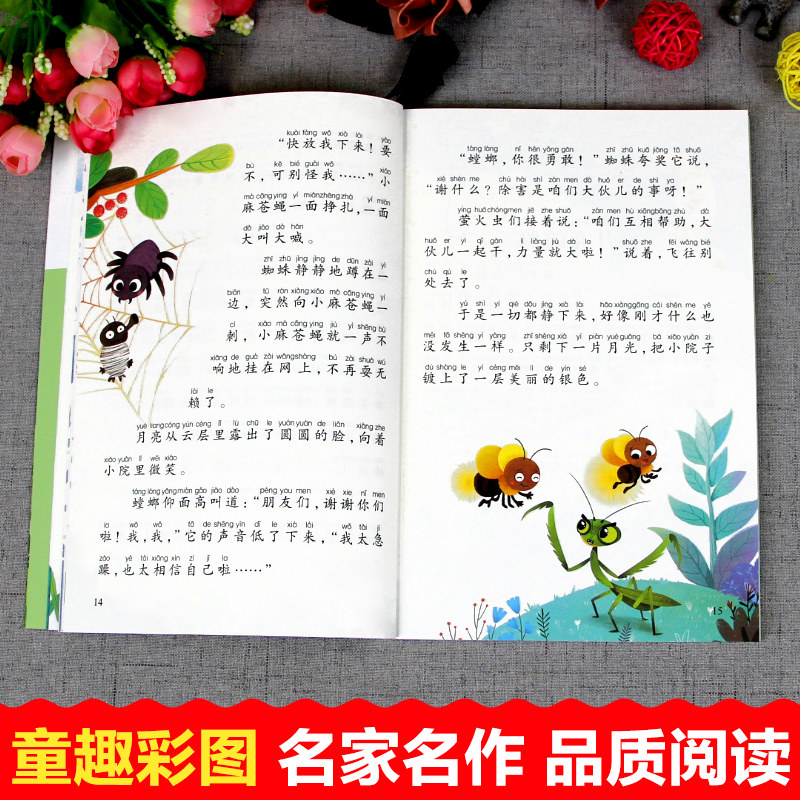 kuài fàng wǒ xià lái yào
“快放我下来！要
bù kě bié guài wǒ xiǎo
不，可别怪我……”小
má cāng yíng yí miàn zhēng zhá yí miàn
麻苍蝇一面挣扎，一面
dà jiào dà hǎn
大叫大喊。
zhī zhū jìng jìng de dūn zài yì
蜘蛛静静地蹲在一
biān tū rán xiàng xiǎo má cāng yíng yí
边，突然向小麻苍蝇一
cì xiǎo má cāng yíng jiù yì shēng bù
刺，小麻苍蝇就一声不
xiǎng de guà zài wǎng shàng bú zài shuǎ wú
响地挂在网上，不再耍无
lài le
赖了。
yuè liang cóng yún céng lǐ lù chū le yuán yuán de liǎn xiàng zhe
月亮从云层里露出了圆圆的脸，向着
xiǎo yuàn lǐ wēi xiào
小院里微笑。
táng láng yǎng miàn gāo jiào dào péng you men xiè xie nǐ men
螳螂仰面高叫道：“朋友们，谢谢你们
la wǒ wǒ tā de shēng yīn dī le xià lái wǒ tài jí
啦！我，我，”它的声音低了下来，“我太急
zào yě tài xiāng xìn zì jǐ la
躁，也太相信自己啦……”
14
táng láng nǐ hěn yǒng gǎn zhī zhū kuā jiǎng tā shuō
“螳螂，你很勇敢！”蜘蛛夸奖它说，
xiè shén me chú hài shì zán men dà huǒ ér de shì ya
“谢什么？除害是咱们大伙儿的事呀！”
yíng huǒ chóng men jiē zhe shuō zán men hù xiāng bāng zhù dà
萤火虫们接着说：“咱们互相帮助，大
huǒ ér yì qǐ gàn lì liàng jiù dà la shuō zhe fēi wǎng bié
伙儿一起干，力量就大啦！”说着，飞往别
chù qù le
处去了。
yú shì yí qiè dōu jìng xià lái hǎo xiàng gāng cái shén me yě
于是一切都静下来，好像刚才什么也
méi fā shēng yí yàng zhǐ shèng xià yí piàn yuè guāng bǎ xiǎo yuàn zi
没发生一样。只剩下一片月光，把小院子
dù shàng le yì céng měi lì de yín sè
镀上了一层美丽的银色。
15
童趣彩图 名家名作 品质阅读